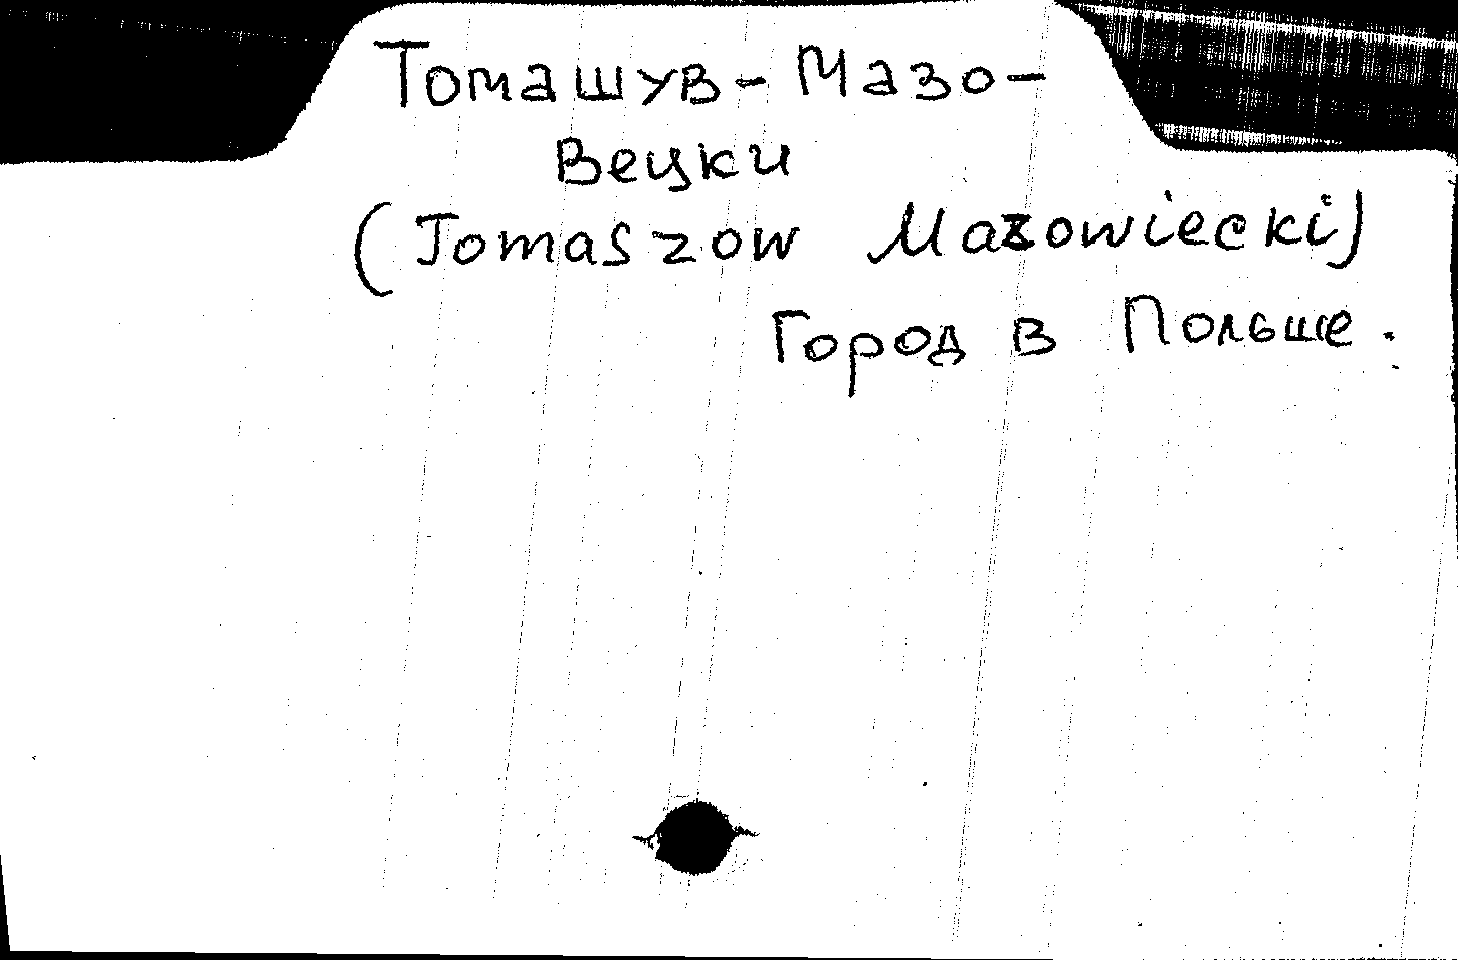 Томашув-Мазо-
вецки
(Tomaszow Mazowiecki)
Город в Польше.